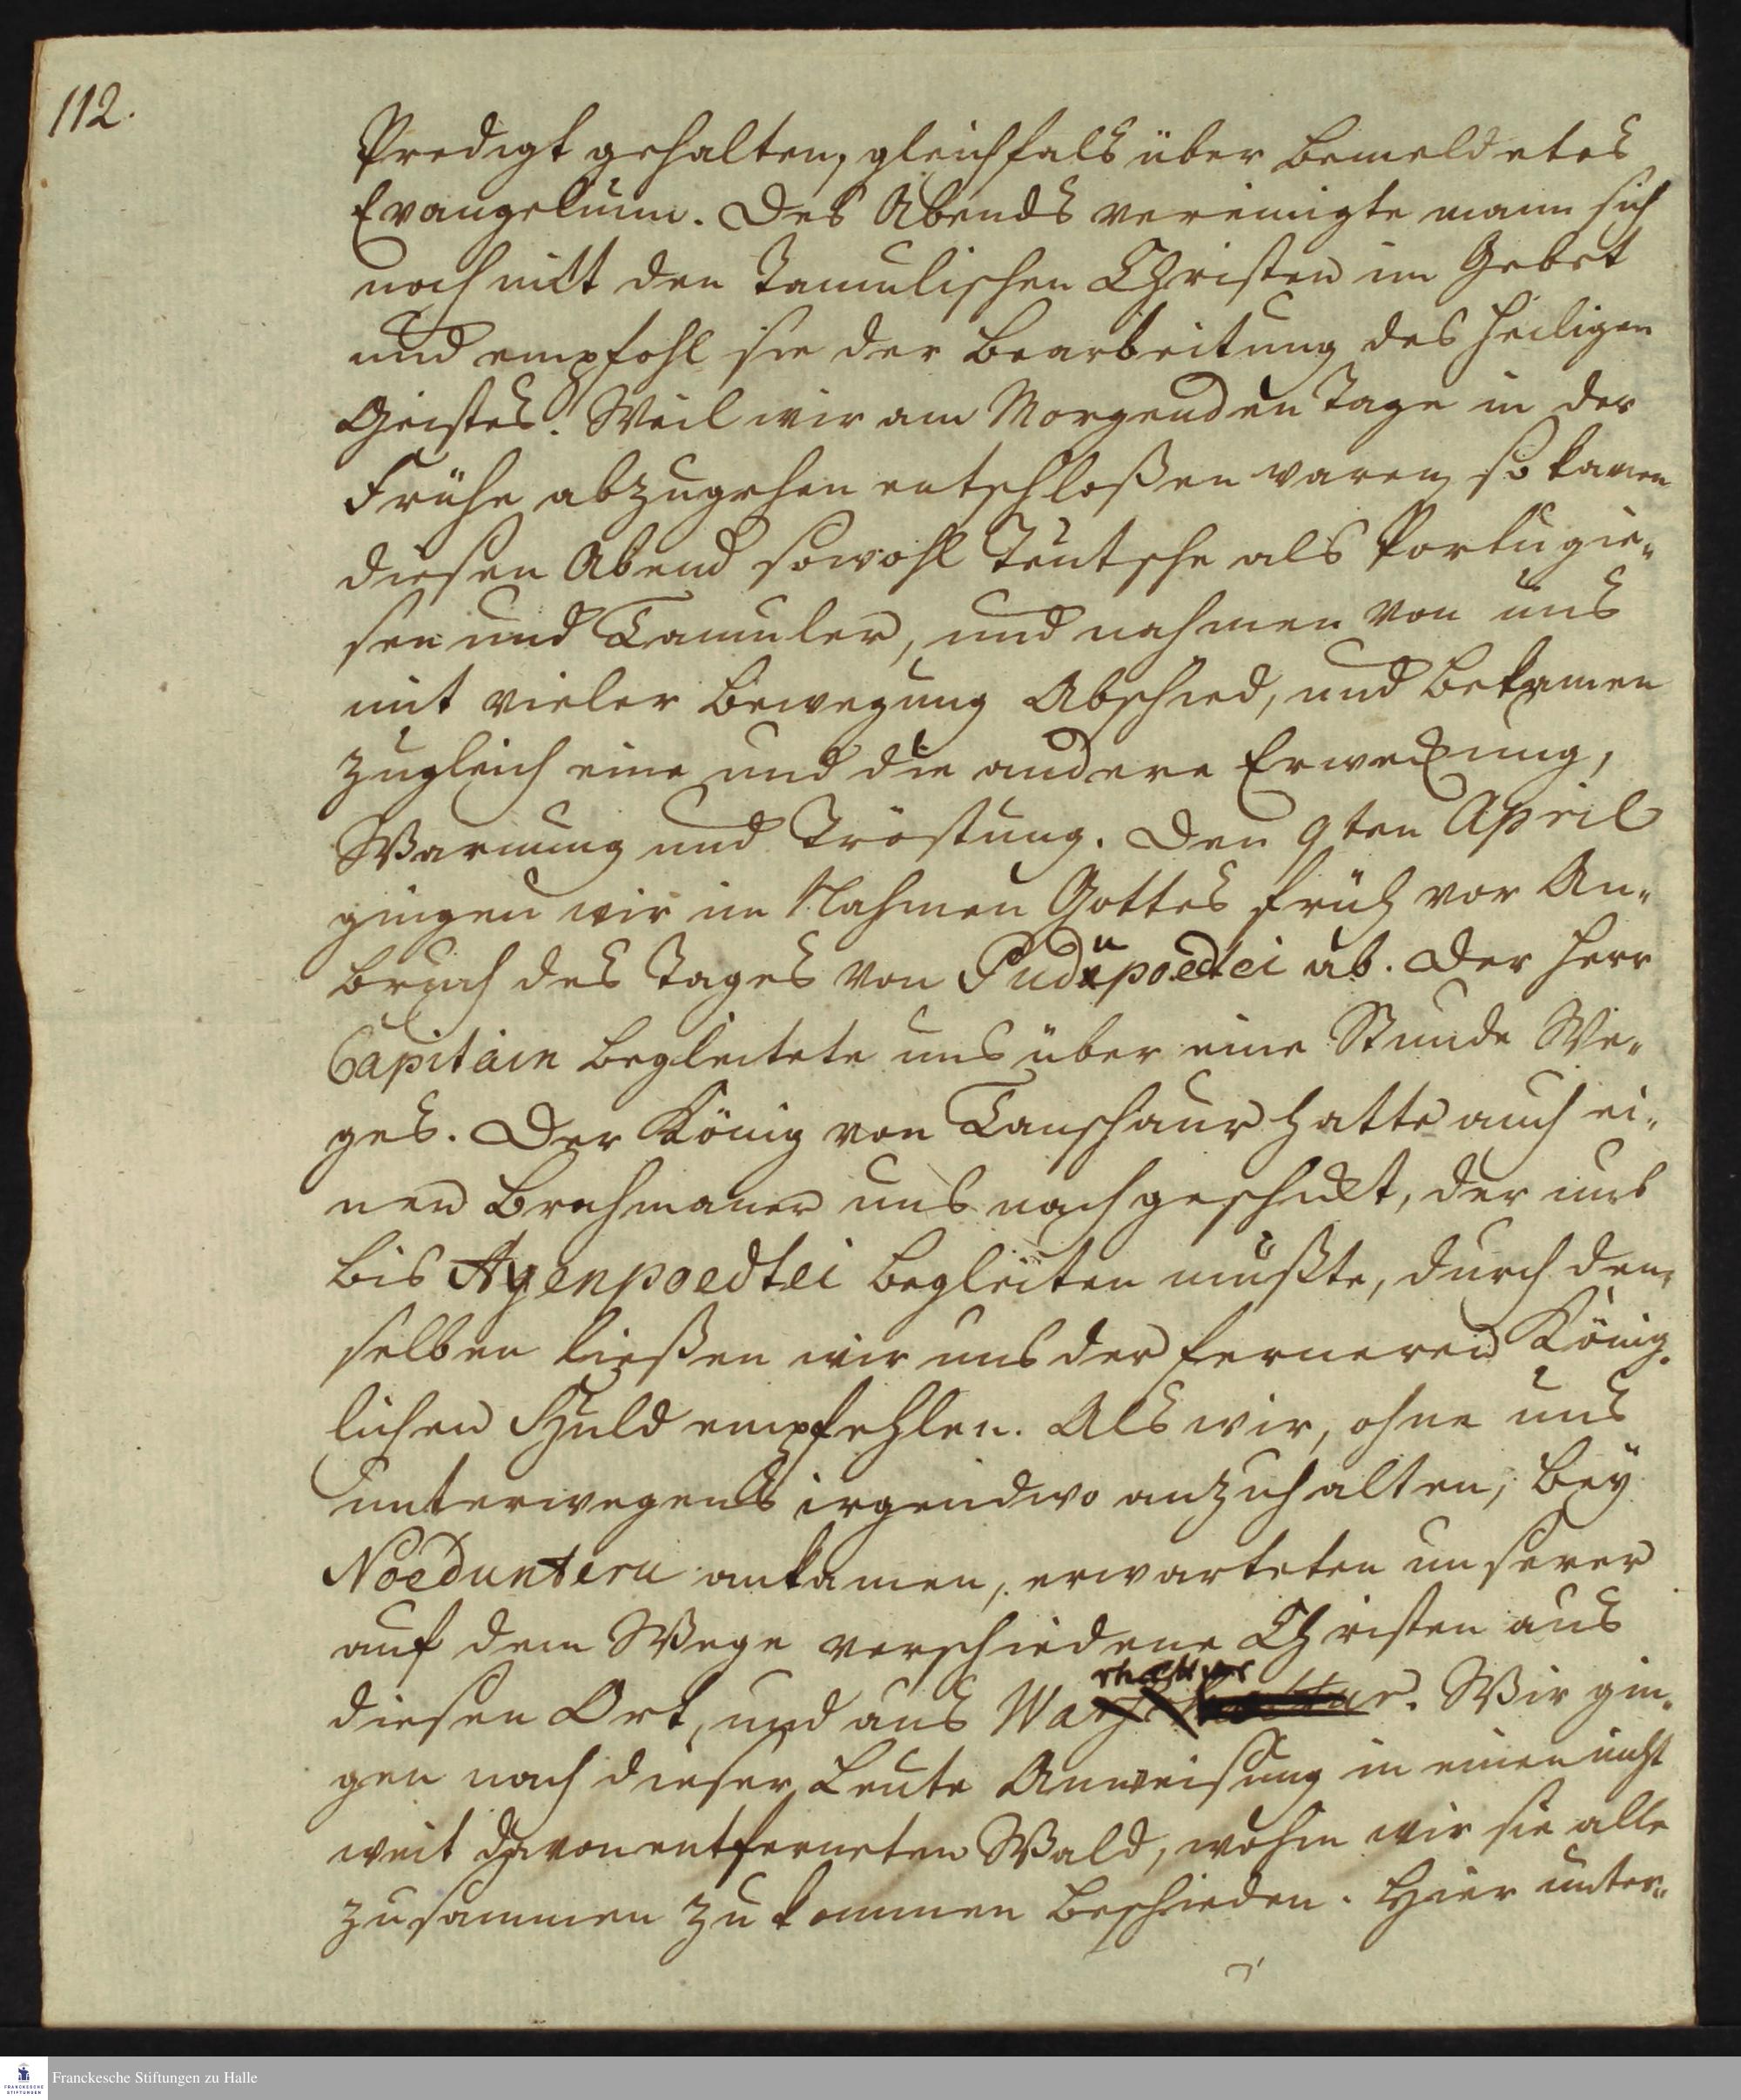 112.
Predigt gehalten, gleichfals über bemeldetes
Evangelium. Des Abends vereinigte mann sich
noch mit den Tamulischen Christen im Gebet
und empfohl sie der Bearbeitung des heiligen
Geistes. Weil wir am Morgenden Tage in der
Frühe abzugehen entschloßen waren, so kamen
diesen Abend sowohl Teutsche als Portugie-
sen und Tamuler, und nahmen von uns
mit vieler Bewegung Abschied, und bekamen
zugleich eine und die andere Erweckung,
Warnung und Tröstung. Den 9ten April
gingen wir im Nahmen Gottes früh vor An-
bruch des Tages von Pudupoedtei ab. Der Herr
Capitain begleitete uns über eine Stunde We-
ges. Der König von Tanschaur hatte auch ei-
nen Brahmaner uns nachgeschickt, der uns
bis Ayenpoedtei begleiten mußte, durch den-
selben ließen wir uns der ferneren König-
lichen Huld empfehlen. Als wir, ohne uns
unterwegens irgendwo anzuhalten, bey
Noedunteru ankamen, erwarteten unserer
auf dem Wege verschiedene Christen aus
diesen Ort, und aus Wir gin-
gen nach dieser Leute Anweisung in einen nicht
weit davon entferneten Wald, wohin wir sie alle
zusammen zu kommen beschieden. Hier unter-
Franckesche Stiftungen zu Halle
FRANCKESCHE
STIFTUNGEN